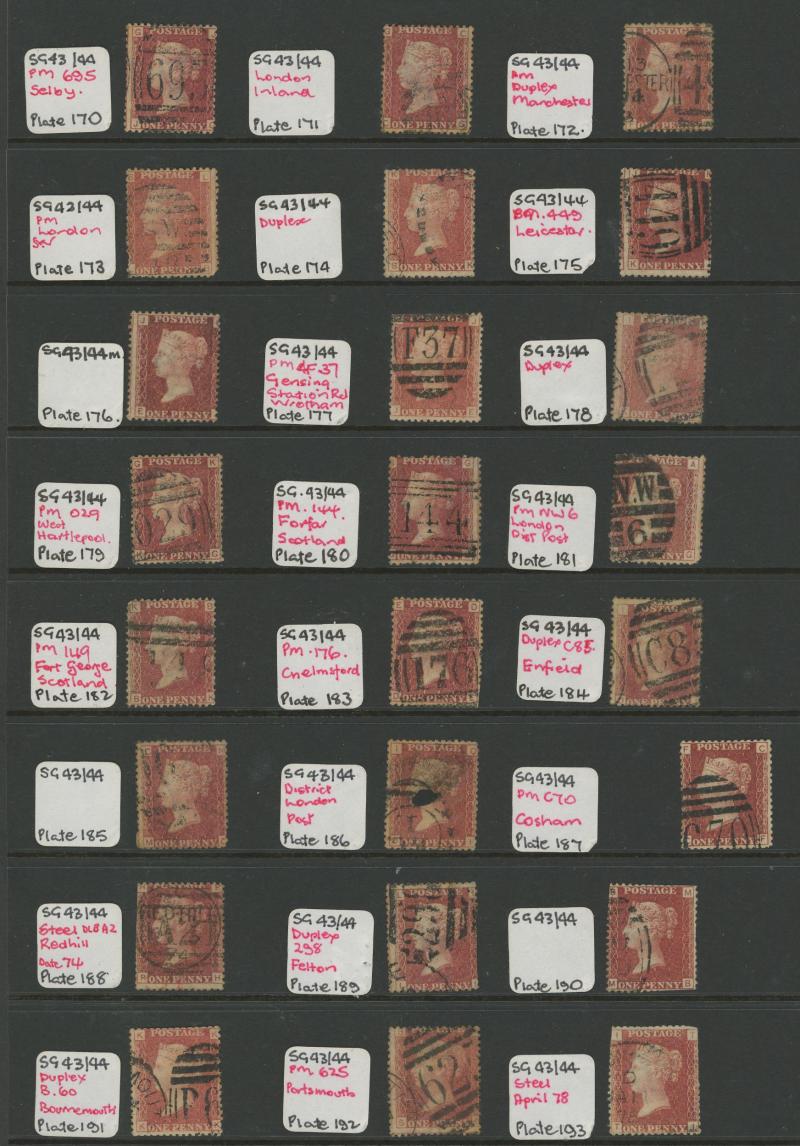 SG43/44
PM 695
Selby.
Plate 170
POSTAGE
695
ONE PENNY
SG43/44
London
Inland
Plate 171
POSTAGE
ONE PENNY
SG43/44
PM
Duplex
Manchester
Plate 172.
POSTAGE
ONE PENNY
SG43/44
PM
London
Plate 173
POSTAGE
ONE PENNY
SG43/44
Duplex
Plate 174
POSTAGE
ONE PENNY
SG43/44
449
Leicester.
Plate 175
449
ONE PENNY
SG43/44m.
Plate 176.
POSTAGE
ONE PENNY
SG43/44
PM F37
Gensing
Station Rd
Wrotham
Plate 177
POSTAGE
F37
ONE PENNY
SG43/44
Duplex
Plate 178
POSTAGE
ONE PENNY
SG43/44
PM 029
West
Hartlepool.
Plate 179
POSTAGE
029
ONE PENNY
SG.43/44
PM.144.
Forfar
Scotland
Plate 180
POSTAGE
144
ONE PENNY
SG43/44
PM NW6
London
Dist Post
Plate 181
N.W
6
ONE PENNY
SG43/44
PM 149
Fort George
Scotland
Plate 182
POSTAGE
ONE PENNY
SG43/44
PM.176.
Chelmsford
Plate 183
POSTAGE
176
ONE PENNY
SG43/44
Duplex C85.
Enfield
Plate 184
POSTAGE
C8
ONE PENNY
SG43/44
Plate 185
POSTAGE
ONE PENNY
SG43/44
District
London
Post
Plate 186
POSTAGE
SG43/44
PM C70
Cosham
Plate 187
POSTAGE
C70
ONE PENNY
SG43/44
Steel DLB A2
Redhill
Date 74
Plate 188
ONE PENNY
SG43/44
Duplex
298
Felton
Plate 189
298
SG43/44
Plate 190
POSTAGE
ONE PENNY
SG43/44
Duplex
B.60
Bournemouth
Plate 191
POSTAGE
ONE PENNY
SG43/44
PM 625
Portsmouth
Plate 192
POSTAGE
62
ONE PENNY
SG43/44
Steel
April 78
Plate 193
POSTAGE
ONE PENNY